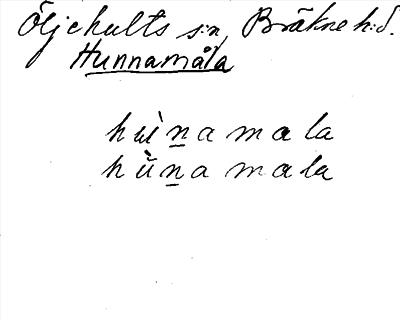 Öljehults s:n, Bräkne h:d.
Hunnamåla
hùn̲amala
hǜn̲amala